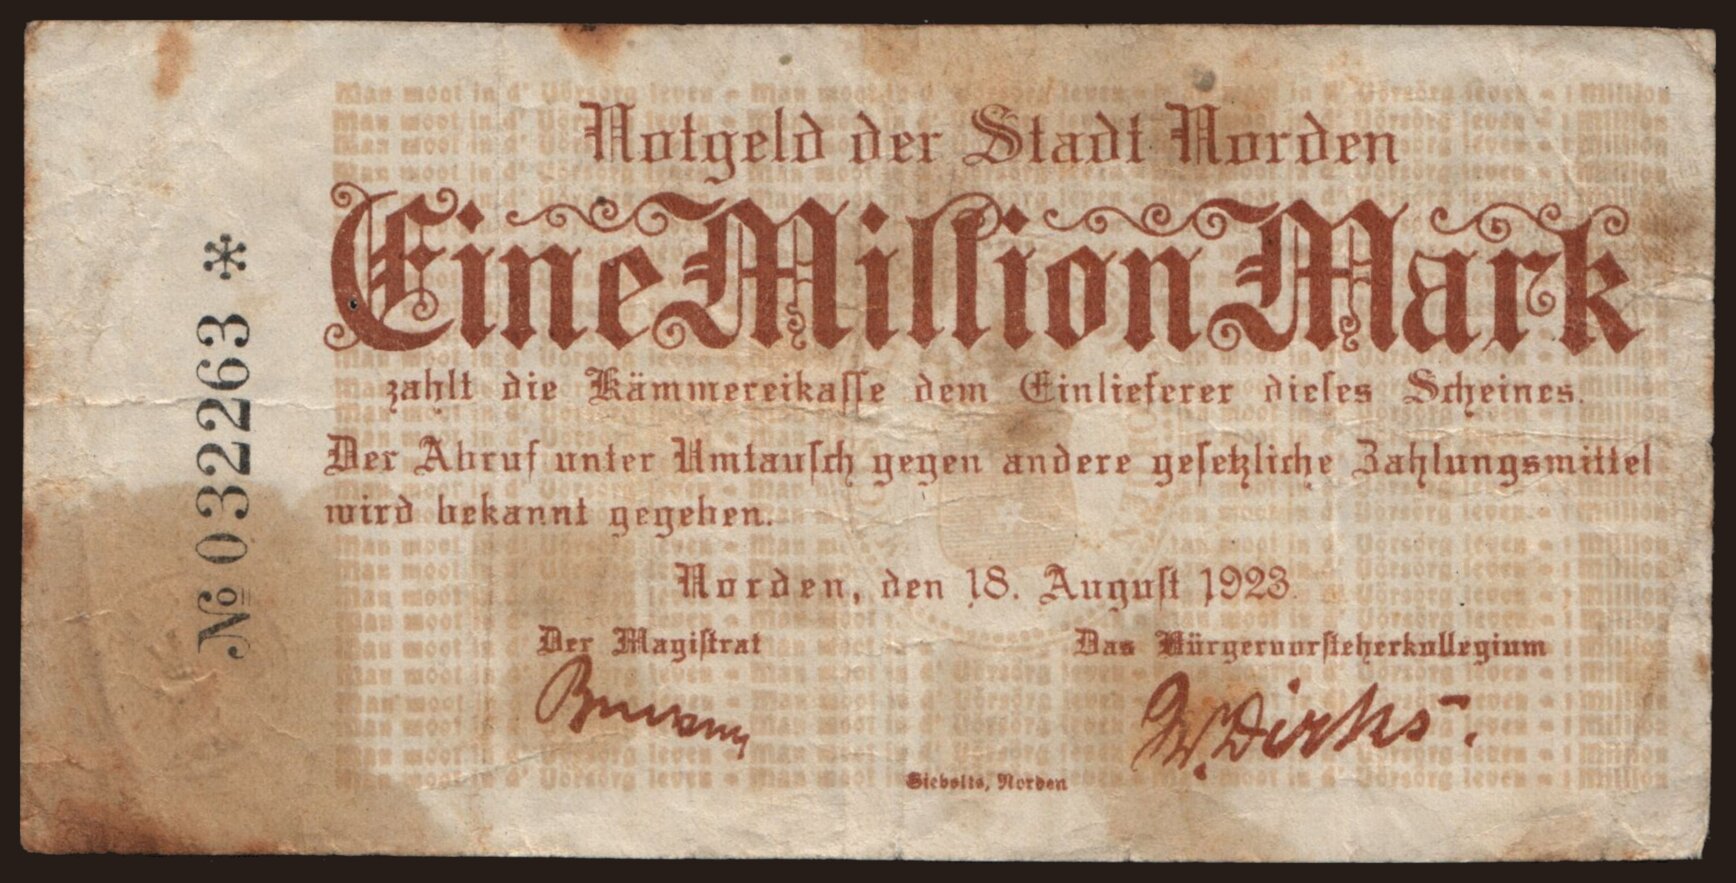 Notgeld der Stadt Norden
Eine Million Mark
zahlt die Kämmereikasse dem Einlieferer dieses Scheines.
Der Abruf unter Umtausch gegen andere gesetzliche Zahlungsmittel
wird bekannt gegeben.
Norden, den 18. August 1923.
Der Magistrat Das Bürgervorsteherkollegium
W. Dirks.
Siebolts, Norden
№ 032263 *
Man moot in d' Vörsörg leven - Man moot in d' Vörsörg leven - 1 Million